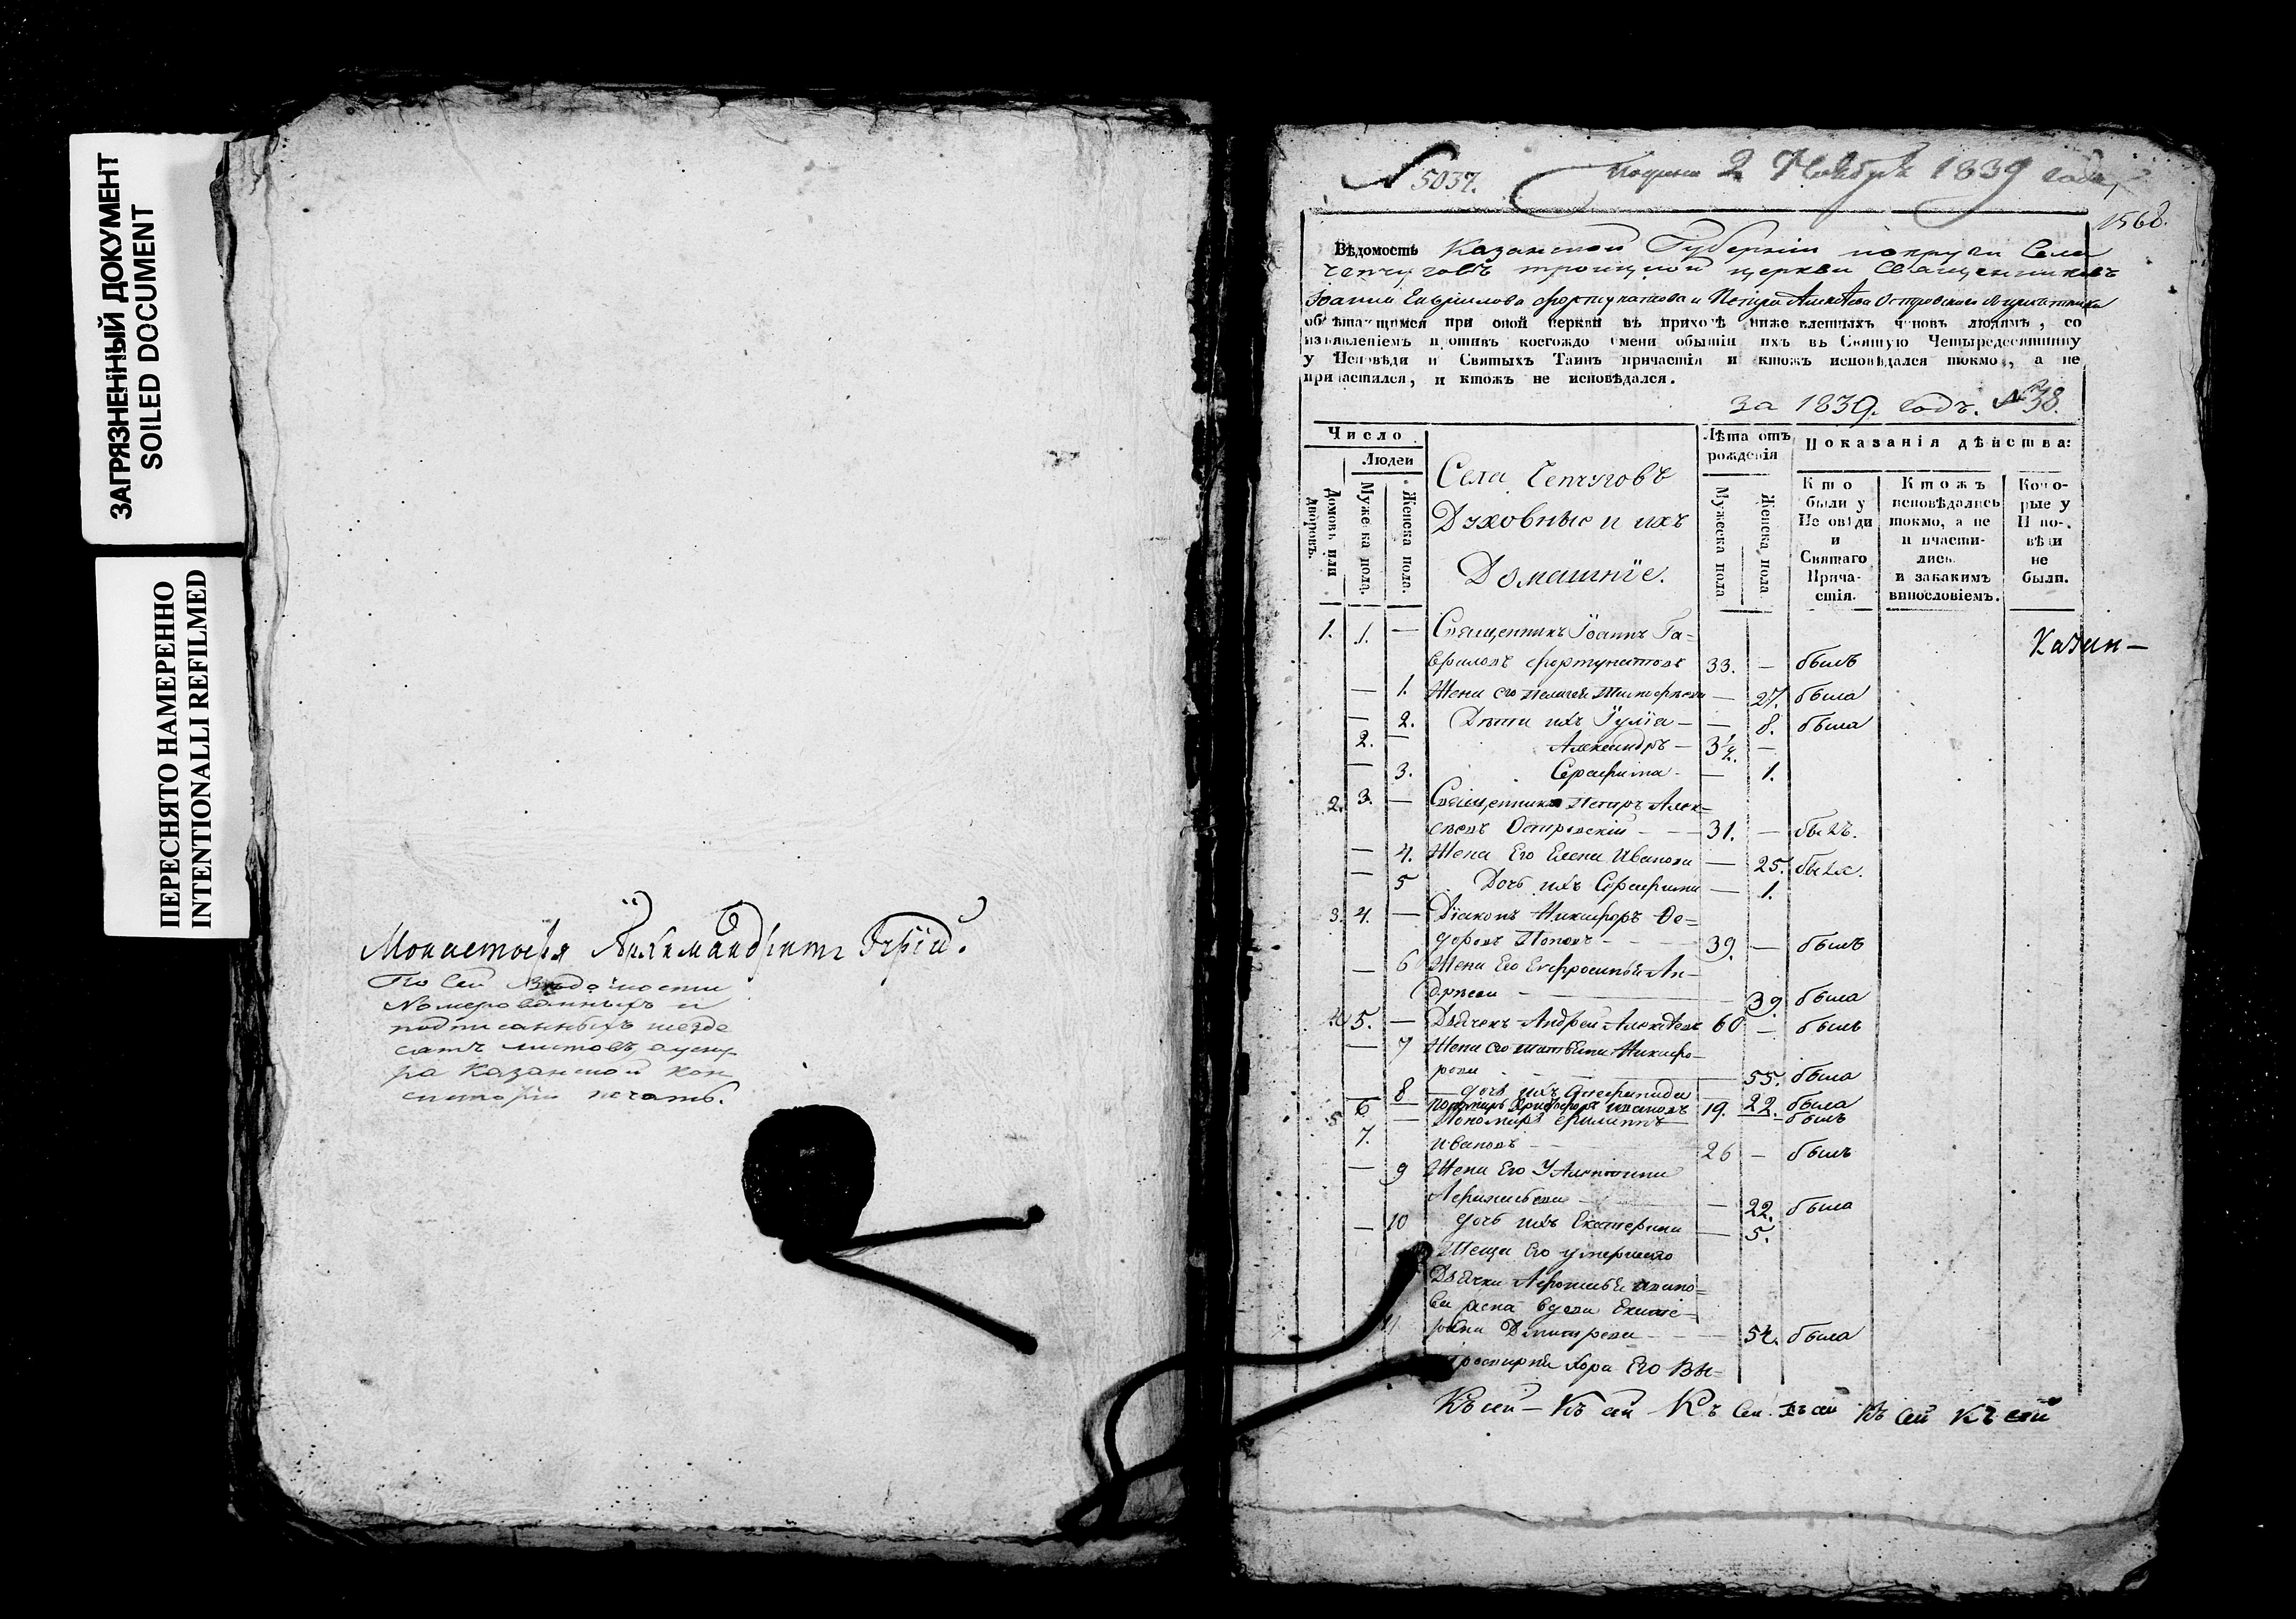 ЗАГРЯЗНЕННЫЙ ДОКУМЕНТ
SOILED DOCUMENT
ПЕРЕСНЯТО НАМЕРЕННО
INTENTIONALLI REFILMED
Монастыря Архимандритъ
По сей Вѣдомости
Номерованныхъ и
подписанныхъ шезде
сятъ листовъ, а у сну
ра Казанской Кон
систоріи печать.
№ 5037. 2 Ноября 1839 года
1568.
Вѣдомость Казанской Губерніи округи Села
Чепчуговъ троицкой церкви Священниковъ
Іоанна Гаврилова Фортунатова и Петра Алексѣева Островскаго
обѣтающимся при оной церкви въ приходѣ нижеявленныхъ чиновъ людямъ, со
изъявленіемъ противъ коегождо имени бытіи ихъ въ Святую Четыредесятницу
у Исповѣди и Святыхъ Таинъ причастія и ктожъ исповѣдался токмо, а не
причастился, и ктожъ не исповѣдался.
за 1839. годъ. № 38.
Число
Людей
Домовъ или дворовъ.
Мужеска пола.
Женска пола.
Села Чепчуговъ
Духовные и ихъ
Домашніе.
Лѣта отъ рожденія
Мужеска пола
Женска пола
Показанія дѣйства:
Кто были у Исповѣди и Святаго Причастія.
Ктожъ исповѣдались токмо, а не причастились и за какимъ винословіемъ.
Которые у Исповѣди не были.
1. 1. — Священникъ Іоаннъ Га=
вриловъ Фортунатовъ 33. — былъ
Казан—
— 1. Жена его Пелагея — 27. была
— 2. Дѣти ихъ Іулія — — 8. была
2. — Александръ — 3½ —
— 3. Серафима — — 1.
2. 3. — Священникъ Петръ Алек=
сѣевъ Островскій — 31. — былъ.
— 4. Жена Его Елена Иванова — 25. была.
— 5 Дочь ихъ Серафима — 1.
3. 4. — Діаконъ Никифоръ Ѳе=
доровъ Поповъ — 39. — былъ
— 6 Жена Его Евфросинья Ан—
дреева — 39. была
4. 5. — Дьячекъ Андрей Алексѣевъ 60 — былъ
— 7 Жена его Татьяна Никифо—
рова — 55. была
8 дочь ихъ 22. была
6 — Ивановъ 19. — былъ
5 7. — Пономарь Филиппъ
Ивановъ 26 — былъ
— 9 Жена Его Устинья
— 22. была
— 10 дочь ихъ Екатерина — 5.
Теща Его умершаго
Дьячка Афонасья Ивано=
ва жена вдова Екате—
11 рина Димитрева — 54. была
Просвирня
Къ сей — Къ сей Къ сей Къ сей Къ сей Къ сей